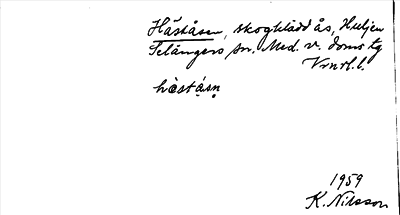 Håståsen, skogklädd ås, Huljen
Selångers sn. Med. v. doms tg
Vrnrl. l.
hòstá̤sn̥
1959
K. Nilsson